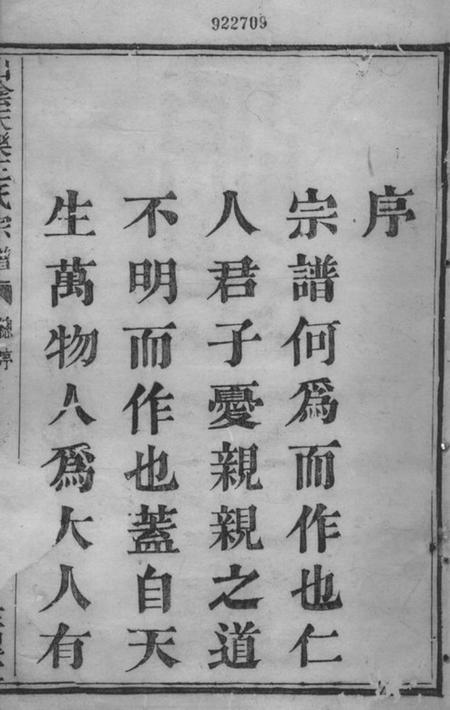 922709
序
宗譜何爲而作也仁
人君子憂親親之道
不明而作也蓋自天
生萬物人爲大人有
山陰天樂王氏宗譜
序